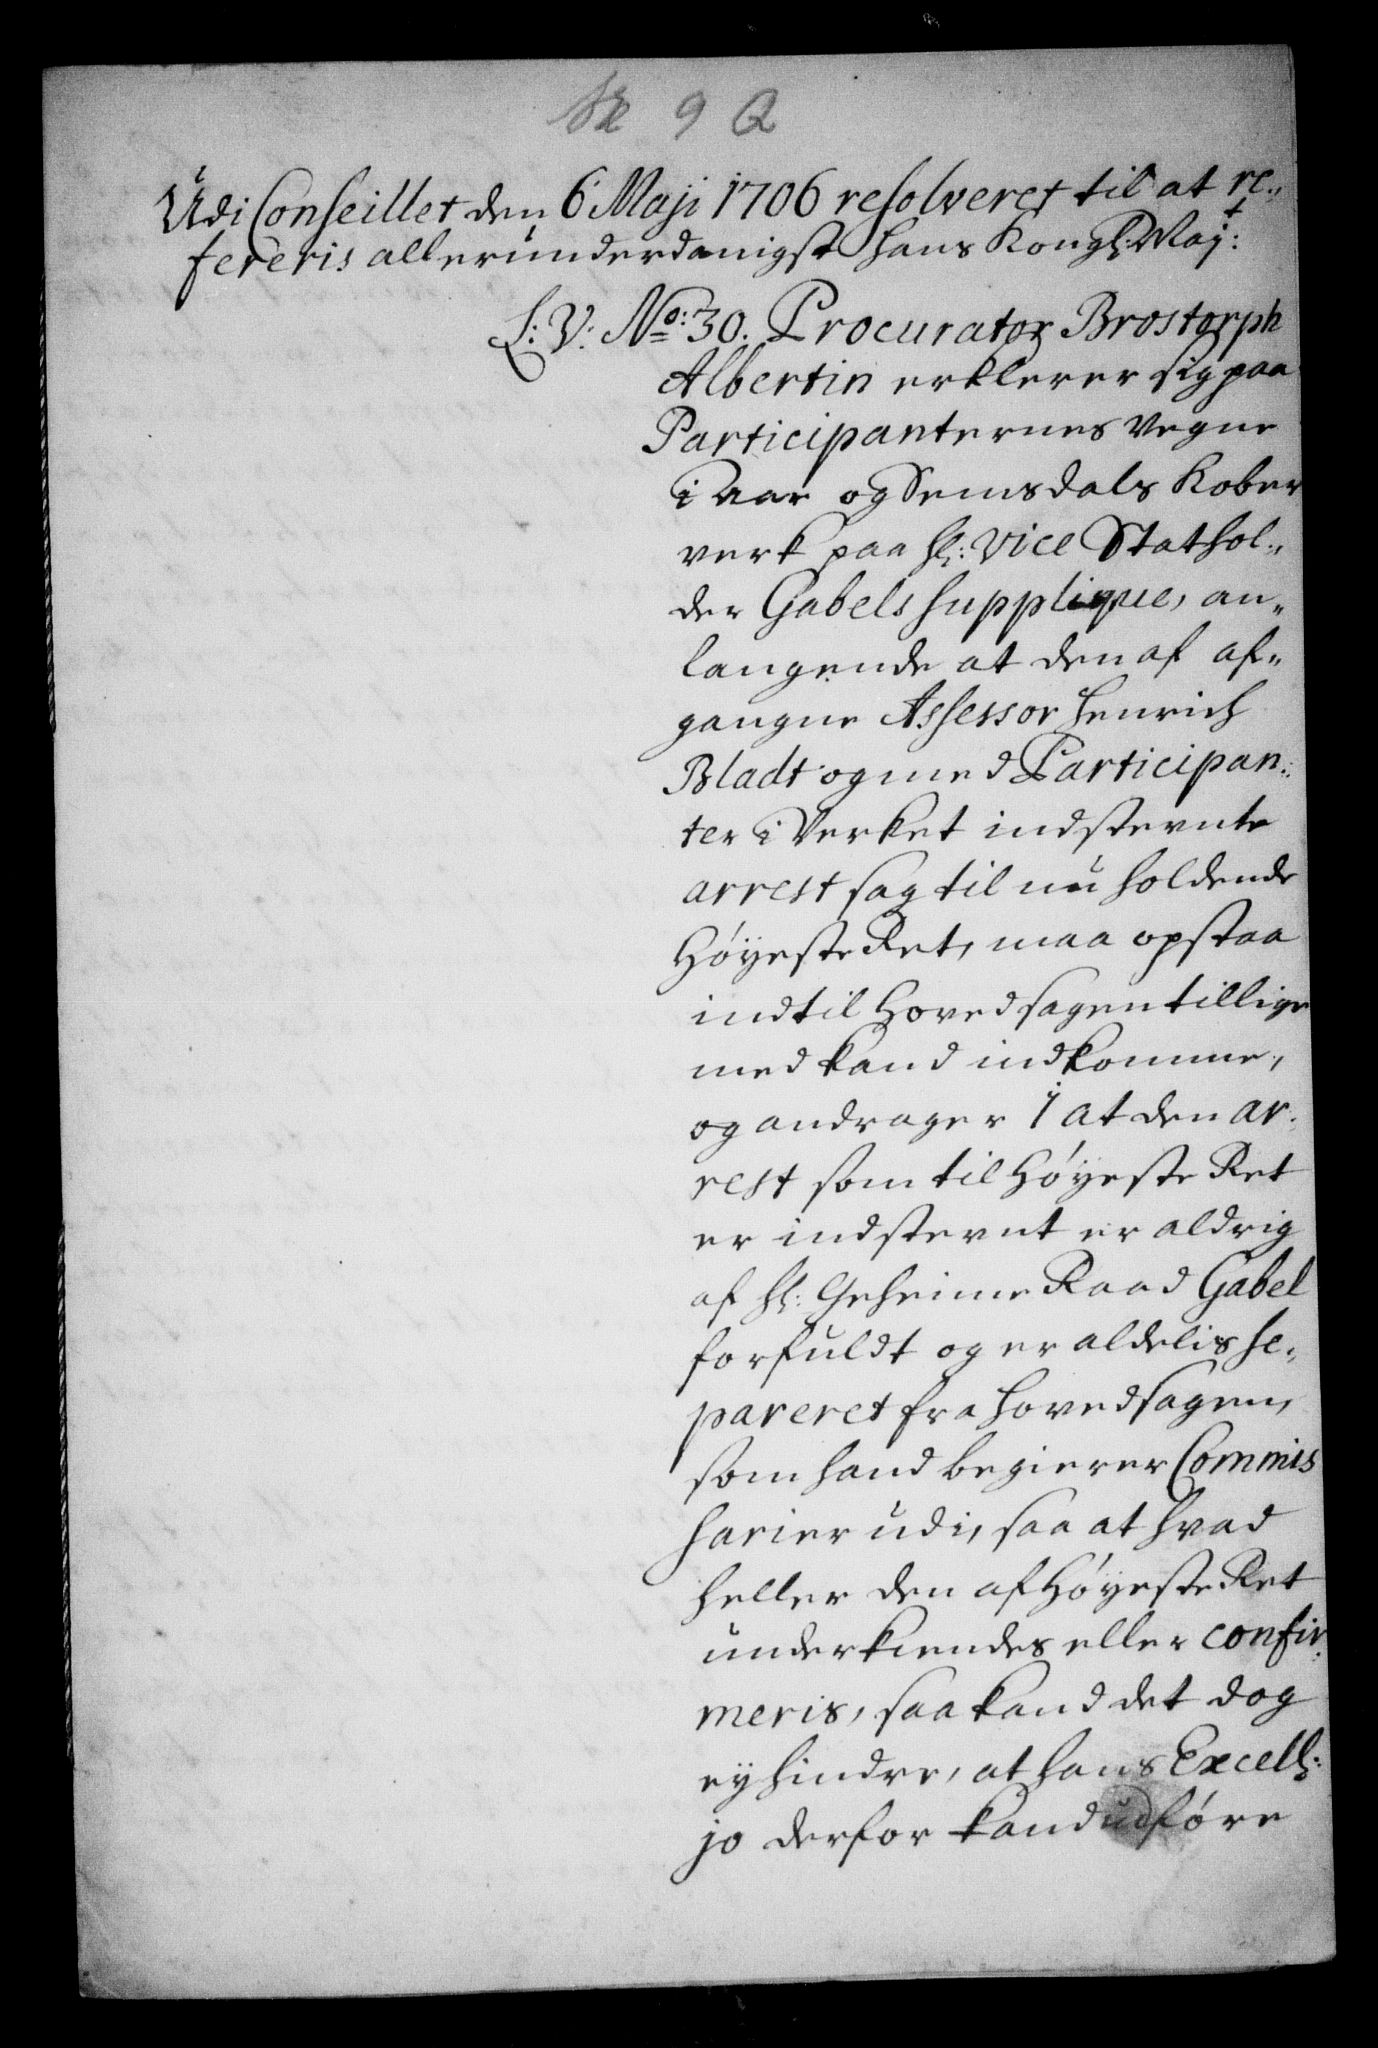 9 Q
Udi Conseillet den 6 Maji 1706 resolveret til at re„
fereris allerunderdanigst hans Kongl: Maj:t
L: V: No: 30. Procurator Brostorph
Albertin erklerer sig paa
Participanternes Vegne
i Aar og Semsdals Kober
verk paa Hr: Vice Stathol„
der Gabels supplique, an„
langende at den af af„
gangne Assessor Henrich
Bladt og med Participan„
ter i Verket indstevnte
arrest sag til nu holdende
Høyeste Ret, maa opstaa
indtil Hovedsagen tillige
med kand indkomme,
og andrager 1 at den ar„
rest som til Høyeste Ret
er indstevnt er aldrig
af Hr: Geheime Raad Gabel
forfuldt og er aldelis se„
pareret fra hovedsagen,
som hand begierer Commis
sarier udi, saa at hvad
heller den af Høyeste Ret
underkiendes eller confir„
meris, saa kand det dog
ey hindre, at hans Excell:
jo derfor kand udføre